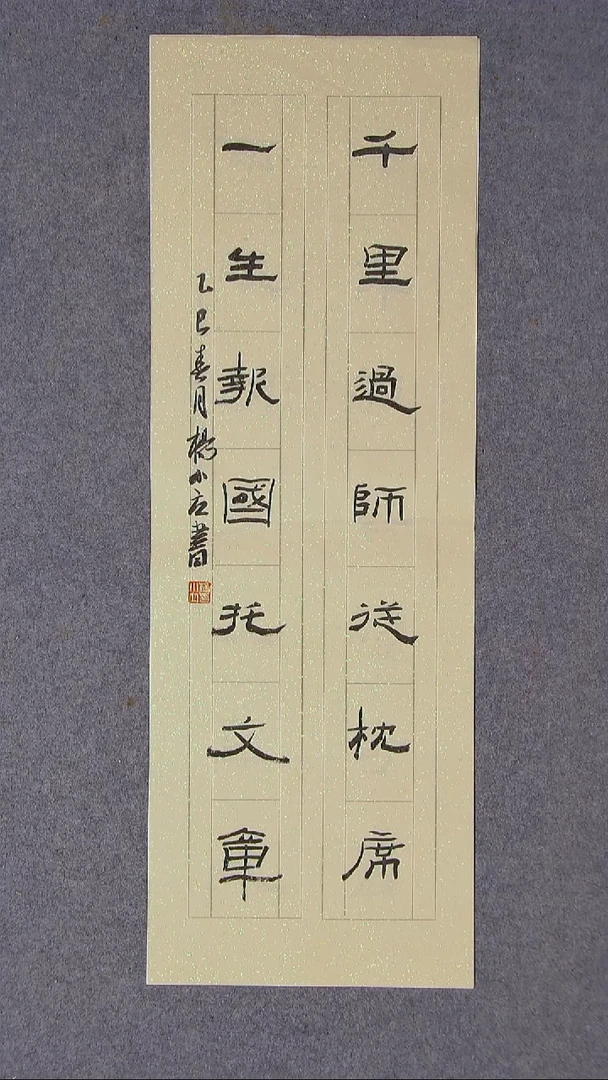 千里過師從枕席
一生報國托文章
乙巳春月楊小应書